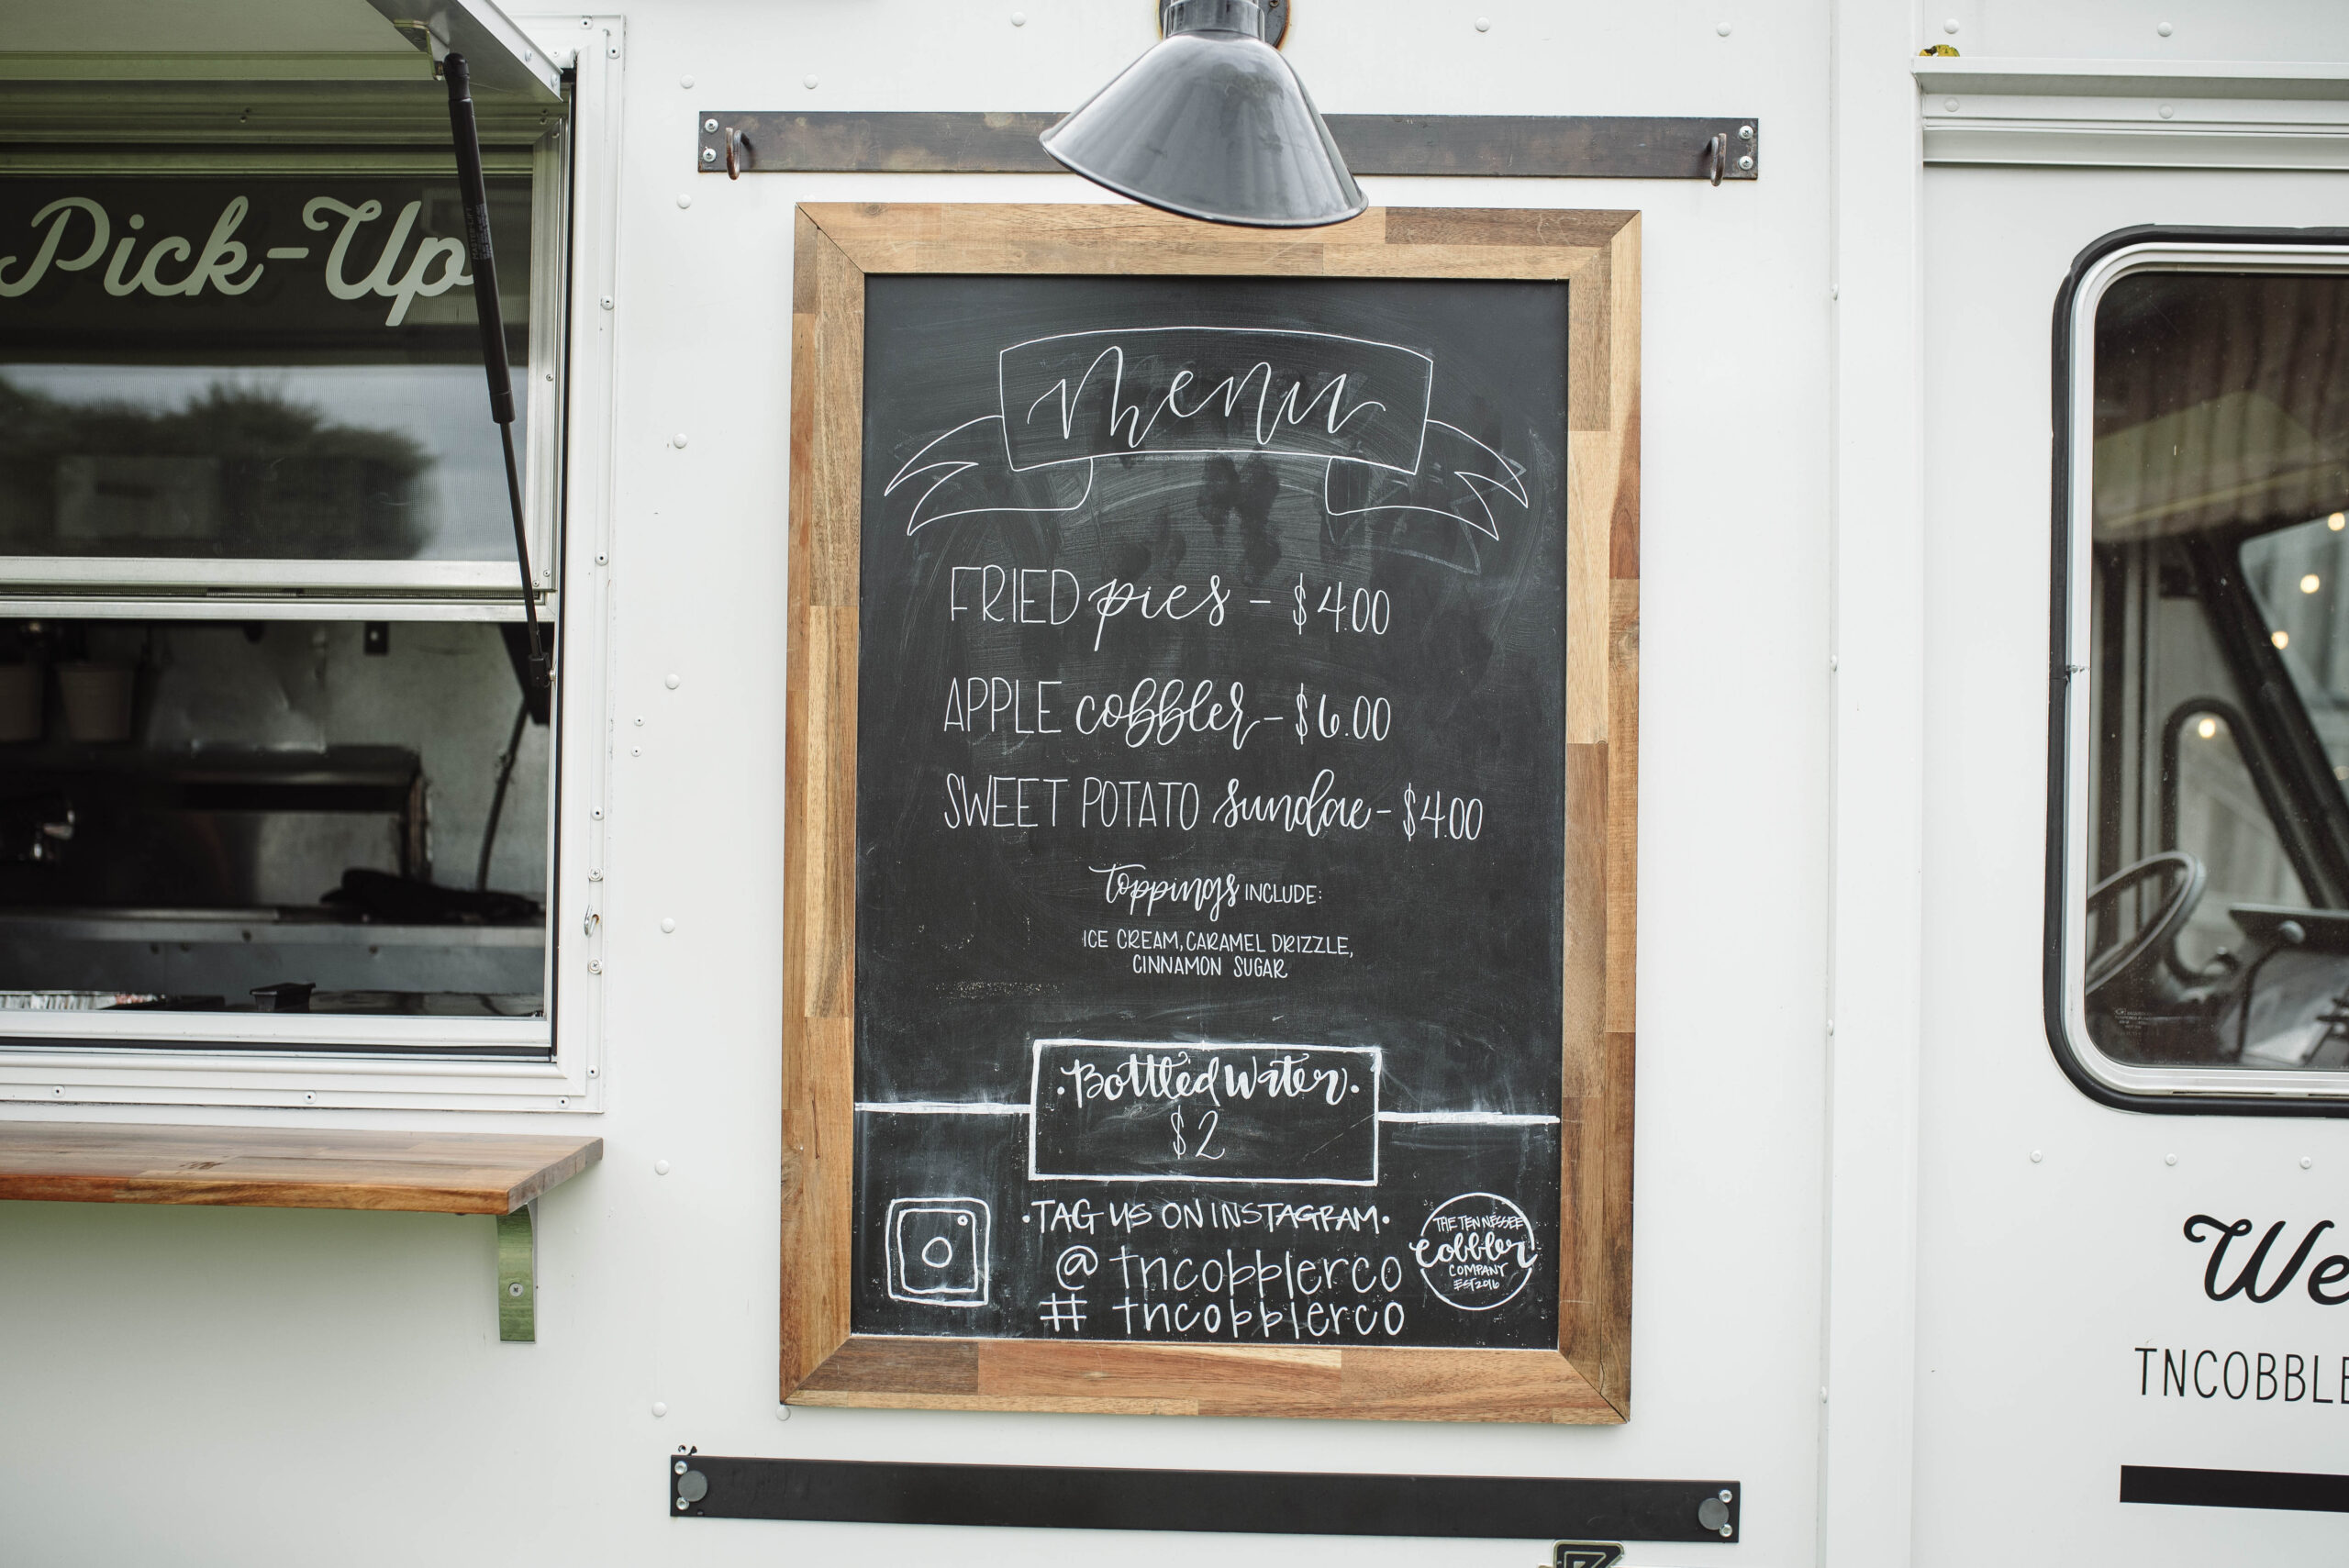 Pick-Up
menu
FRIED pies - $4.00
APPLE cobbler - $6.00
SWEET POTATO sundae - $4.00
toppings INCLUDE:
ICE CREAM, CARAMEL DRIZZLE,
CINNAMON SUGAR
·Bottled Water·
$2
·TAG US ON INSTAGRAM·
@tncobblerco
#tncobblerco
THE TENNESSEE
cobbler
COMPANY
EST 2016
We
TNCOBBLE